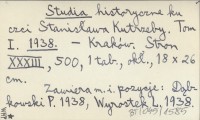 Studia historyczne ku
czci Stanisława Kutrzeby. Tom
I. 1938. – Kraków. Stron
XXXIII, 500, 1 tabl., okł., 18 x 26
cm.
Zawiera m. i. pozycje: Dąb-
kowski P. 1938, Wyrostek L. 1938.